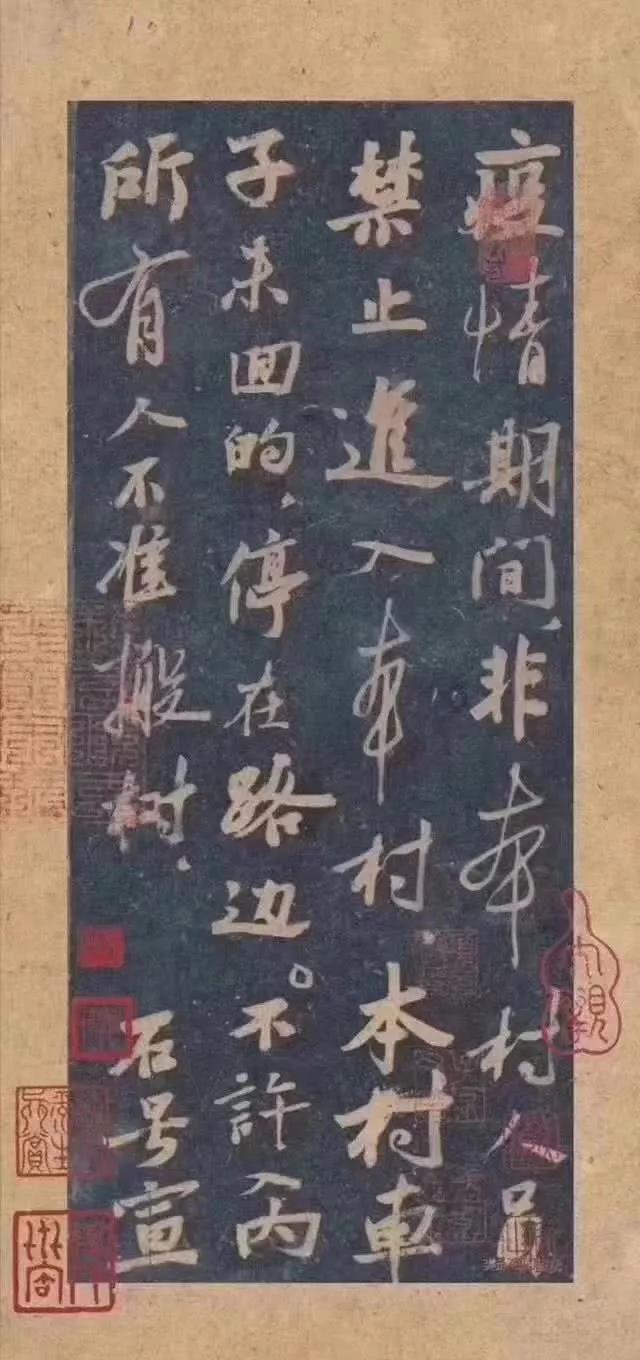 疫情期间，非本村人员
禁止進入本村。本村車
子未囬的，停在路边。不許入内
所有人不准搬树．
石号宣
大觀